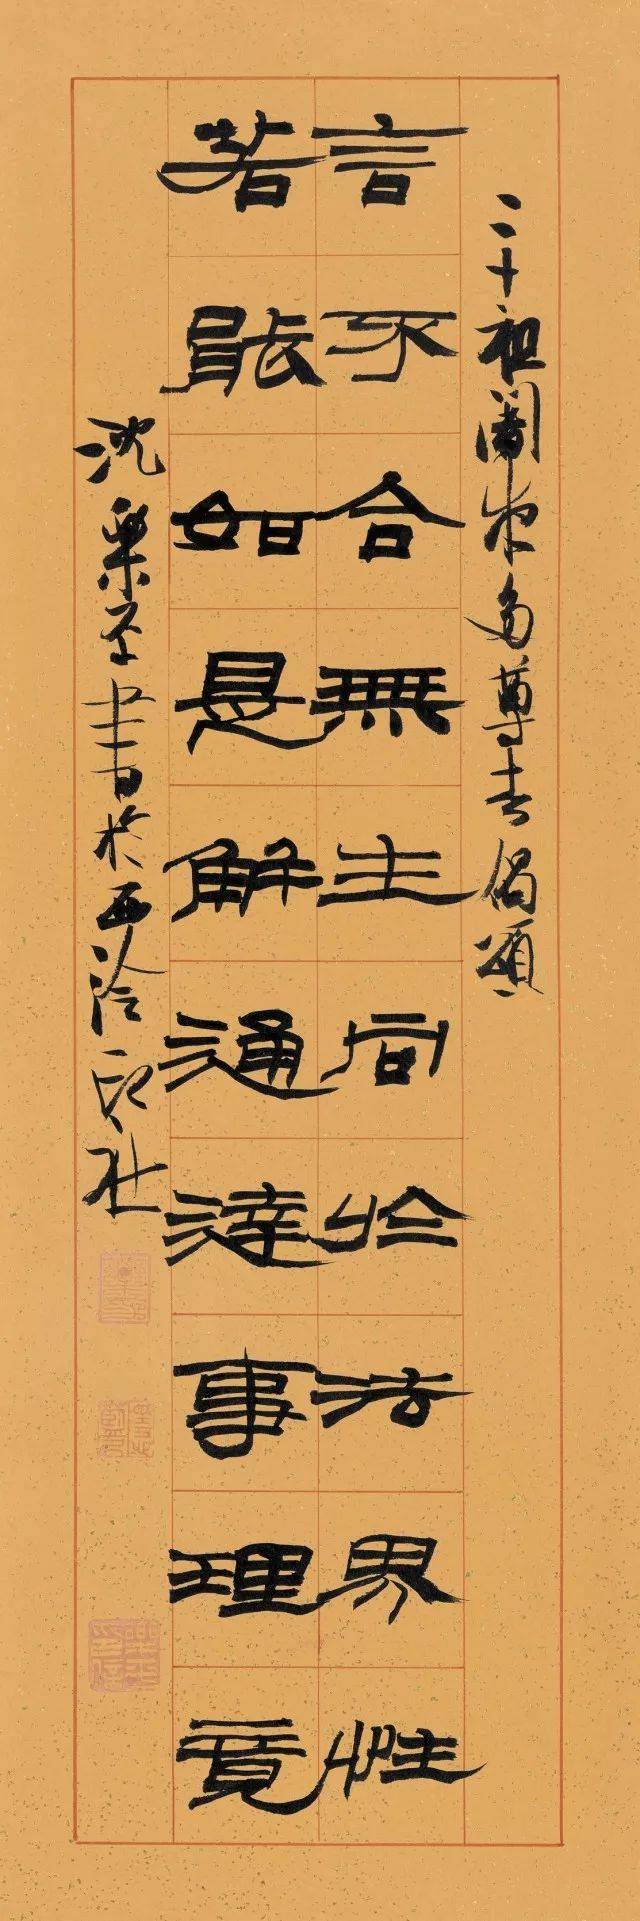 二十祖闍夜多尊者偈頌
言下合無生同於法界性
若能如是解通達事理竟
沈樂平書於西泠印社